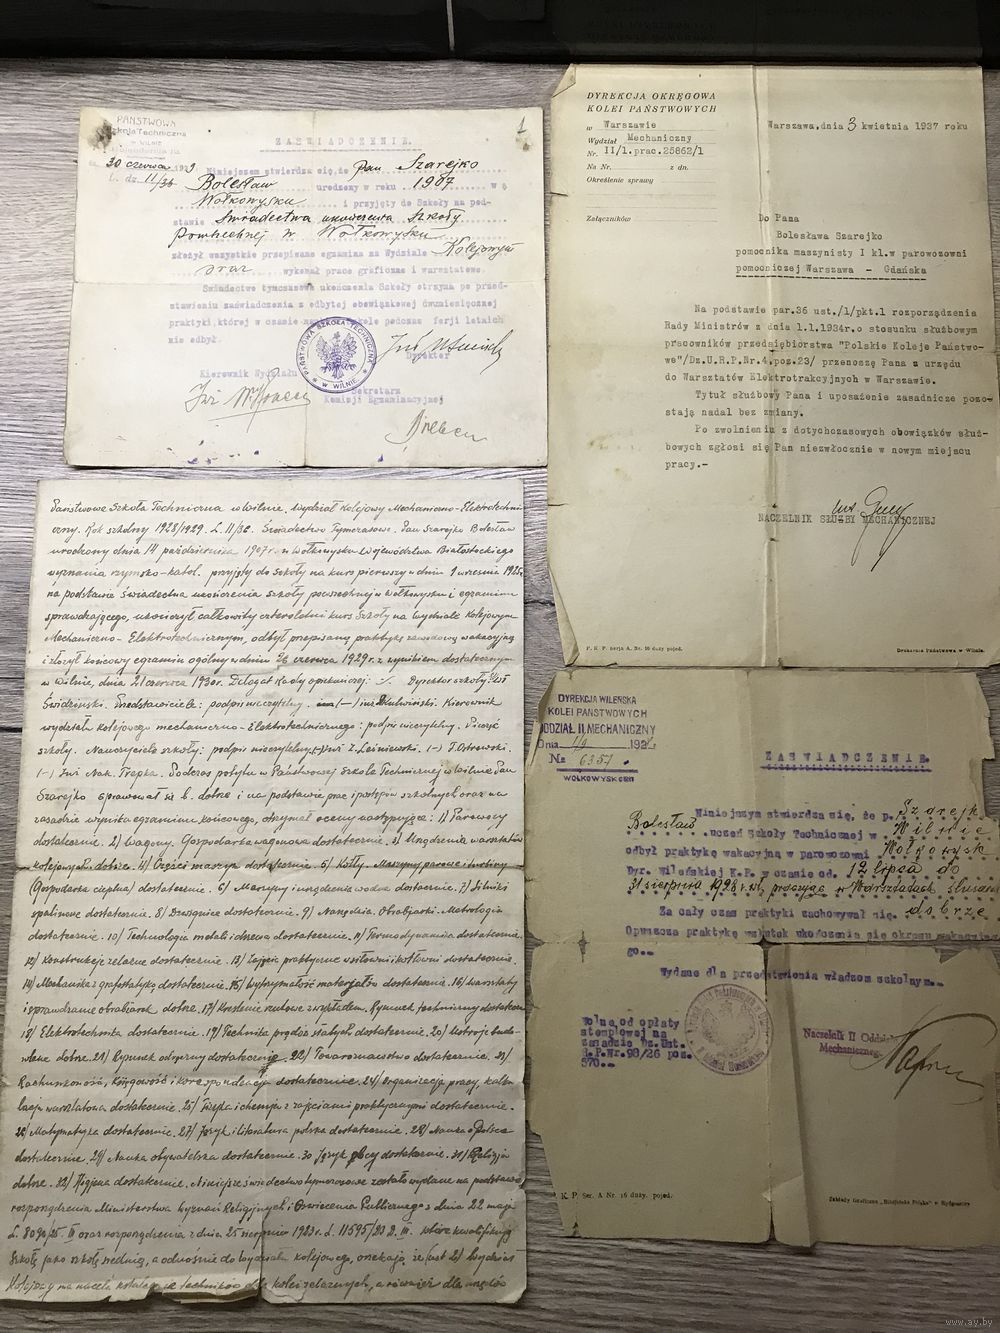 PAŃSTWOWA
Szkoła Techniczna
w WILNIE
ZAŚWIADCZENIE.
30 czerwca 1929
L. dz. 11/36
Niniejszem stwierdza się, że Pan Szarejko
Bolesław urodzony w roku 1907 w
Wołkowysku i przyjęty do Szkoły na pod-
stawie Świadectwa ukończenia Szkoły
Powszechnej w Wołkowysku
złożył wszystkie przepisane egzamina na Wydziale Kolejowym
oraz wykonał prace graficzne i warsztatowe.
Świadectwo tymczasowe ukończenia Szkoły otrzyma po przed-
stawieniu zaświadczenia z odbytej obowiązkowej dwumiesięcznej
praktyki, której w czasie podczas ferji letnich
nie odbył.
PAŃSTWOWA SZKOŁA TECHNICZNA
w WILNIE
Dyrektor
Kierownik Wydziału
Sekretarz
Komisji Egzaminacyjnej
DYREKCJA OKRĘGOWA
KOLEI PAŃSTWOWYCH
w Warszawie
Wydział Mechaniczny
Nr. II/1.prac.25862/1
Na Nr. z dn.
Określenie sprawy
Załączników
Warszawa,dnia 3 kwietnia 1937 roku
Do Pana
Bolesława Szarejko
pomocnika maszynisty I kl.w parowozowni
pomocniczej Warszawa - Gdańska
Na podstawie par.36 ust./1/pkt.1 rozporządzenia
Rady Ministrów z dnia 1.1.1934r.o stosunku służbowym
pracowników przedsiębiorstwa "Polskie Koleje Państwo-
we"/Dz.U.R.P.Nr.4.poz.23/ przenoszę Pana z urzędu
do Warsztatów Elektrotrakcyjnych w Warszawie.
Tytuł służbowy Pana i uposażenie zasadnicze pozo-
stają nadal bez zmiany.
Po zwolnieniu z dotychczasowych obowiązków służ-
bowych zgłosi się Pan niezwłocznie w nowym miejscu
pracy.-
NACZELNIK SŁUŻBY MECHANICZNEJ
P. K. P. serja A. Nr. 16 duży pojed.
Drukarnia Państwowa w Wilnie.
Państwowa Szkoła Techniczna w Wilnie, wydział Kolejowy Mechaniczno-Elektrotechni-
czny. Rok szkolny 1928/1929. L. 11/36. Świadectwo Tymczasowe. Pan Szarejko Bolesław
urodzony dnia 14 października 1907 r. w Wołkowysku Województwa Białostockiego
wyznania rzymsko-katol. przyjęty do szkoły na kurs pierwszy w dniu 1 września 1925 r.
na podstawie świadectwa ukończenia szkoły powszechnej w Wołkowysku i egzaminu
sprawdzającego, ukończył całkowity czteroletni kurs Szkoły na wydziale Kolejowym
Mechaniczno-Elektrotechnicznym, odbył przepisaną praktykę zawodową wakacyjną
i złożył końcowy egzamin ogólny w dniu 26 czerwca 1929 r. z wynikiem dostatecznym
w Wilnie, dnia 21 czerwca 1930 r. Delegat Rady opiekuńczej: Dyrektor szkoły:
Przedstawiciele: podpis nieczytelny. Kierownik
wydziału kolejowego mechaniczno-Elektrotechnicznego: podpis nieczytelny. Pieczęć
szkoły. Nauczyciele szkoły: podpis nieczytelny (-) Inż Z. Leśniewski. (-) J. Ostrowski.
(-) Inż Nak. Trepka. Podczas pobytu w Państwowej Szkole Technicznej w Wilnie Pan
Szarejko sprawował się b. dobrze i na podstawie prac i postępów szkolnych oraz na
zasadzie wyniku egzaminu końcowego, otrzymał oceny następujące: 1) Parowozy
dostatecznie. 2) Wagony. Gospodarka wagonowa dostatecznie. 3) Urządzenia warsztatów
kolejowych dobrze. 4) Części maszyn dostatecznie. 5) Kotły. Maszyny parowe i turbiny
(Gospodarka cieplna) dostatecznie. 6) Maszyny i urządzenia wodne dostatecznie. 7) Silniki
spalinowe dostatecznie. 8) Dźwignice dostatecznie. 9) Narzędzia. Obrabiarki. Metrologia
dostatecznie. 10) Technologia metali i drzewa dostatecznie. 11) Termodynamika dostatecznie.
12) Konstrukcje żelazne dostatecznie. 13) Zajęcia praktyczne w siłowni i kotłowni dostatecznie.
14) Mechanika z grafostatyką dostatecznie. 15) Wytrzymałość materjałów dostatecznie. 16) Warsztaty
i sprawdzanie obrabiarek dobrze. 17) Kreślenie rzutowe z wykładem. Rysunek techniczny dostatecznie
18) Elektrotechnika dostatecznie. 19) Technika prądów stałych dostatecznie. 20) Ustroje budo-
wlane dobrze. 21) Rysunek odręczny dostatecznie. 22) Towaroznawstwo dostatecznie. 23)
Rachunkowość, księgowość i korespondencja dostatecznie. 24) Organizacja pracy, kalku-
lacja warsztatowa dostatecznie. 25) Fizyka i chemja z zajęciami praktycznymi dostatecznie.
26) Matematyka dostatecznie. 27) Język i literatura polska dostatecznie. 28) Nauka o Polsce
dostatecznie. 29) Nauka obywatelska dostatecznie. 30 Język obcy dostatecznie. 31) Religja
dobrze. 32) Higjena dostatecznie. Niniejsze świadectwo tymczasowe zostało wydane na podstawie
rozporządzenia Ministerstwa Wyznań Religijnych i Oświecenia Publicznego z dnia 22 maja
L. 8090/25. II oraz rozporządzenia z dnia 25 sierpnia 1923 r. L. 11595/23 D. III. które kwalifikują
Szkołę jako szkołę średnią, a odnośnie do wydziału kolejowego orzekają, że (ust 2) Wydział
Kolejowy ma na celu kształcenie techników dla kolei żelaznych, a również dla urzędów
DYREKCJA WILEŃSKA
KOLEI PAŃSTWOWYCH
ODDZIAŁ II. MECHANICZNY
Dnia 1/9 192
№ 6351
WOŁKOWYSK CEN
ZAŚWIADCZENIE.
Niniejszym stwierdza się, że p. Szarejk
Bolesław uczeń Szkoły Technicznej w Wilnie
odbył praktykę wakacyjną w parowozowni Wołkowysk
Dyr. Wileńskiej K.P. w czasie od 12 lipca do
31 sierpnia 1928 r. pracując w Warsztatach ślusars
Za cały czas praktyki zachowywał się dobrze
Opuszcza praktykę wskutek ukończenia się okresu wakacyjne
go.-
Wydane dla przedstawienia władzom szkolnym.-
Wolne od opłaty
stemplowej na
zasadzie Dz.Ust.
R.P.Nr.98/26 poz.
570.-
Naczelnik II Oddziału
Mechanicznego
K. P. Ser. A Nr. 16 duży. pojed.
Zakłady Graficzne "Biblioteka Polska" w Bydgoszczy
www.ay.by